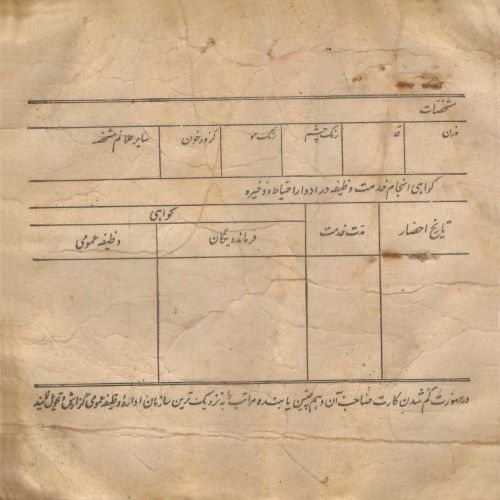 مشخصات
وزن قد رنگ چشم رنگ مو گروه خون سایر علائم مشخصه
گواهی انجام خدمت وظیفه در ادوار احتیاط و ذخیره
تاریخ احضار مدت خدمت گواهی
فرمانده یگان وظیفه عمومی
در صورت گم شدن کارت صاحب آن و همچنین یابنده مراتب را به نزدیک ترین سازمان اداره وظیفه عمومی گزارش و تحویل نمایند